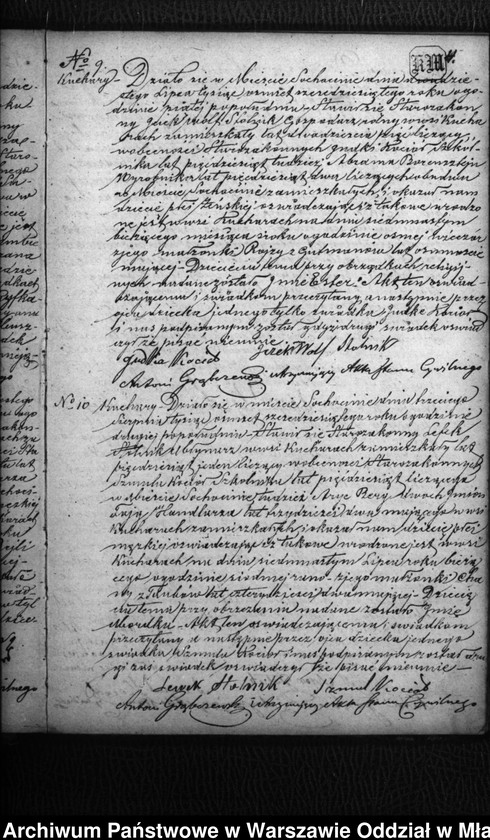 No 9.
Kuchary — Działo się w Mieście Sochocinie dnia
tego Lipca tysiąc osiemset sześćdziesiątego roku o go-
dzinie piątej popołudniu Stawił się Starozakon-
ny Icek Wolf Stolnik Gospodarz rolny w wsi Kucha
rach zamieszkały lat dwadzieścia pięć liczący
w obecności Starozakonnych Judki Kocioł Szkol-
nika lat pięćdziesiąt tudzież Abrama
Wyrobnika lat pięćdziesiąt dwa liczących obudwu
w Mieście Sochocinie zamieszkałych i okazał nam
dziecię płci żeńskiej oświadczając iż takowe urodzo
ne jest w wsi Kucharach na dniu siedmnastym
bieżącego miesiąca i roku o godzinie ósmej wieczór
z jego małżonki Rajzy z Gutmanów lat osiemnaście
mającej. Dziecięciu temu przy obrządkach religij-
nych nadane zostało Imie Ester. Akt ten oświad-
czającemu i świadkom przeczytany, a następnie przez
ojca dziecka jednego tylko świadka Judkę Kocioł
i nas podpisanym został gdyż drugi świadek oświad
czył że pisać nieumie
Judka Kocioł Icek Wolf Stolnik
Antoni utrzymujący Akta Stanu Cywilnego
No 10 Kuchary — Działo się w mieście Sochocinie dnia trzeciego
Sierpnia tysiąc osiemset sześćdziesiątego roku o godzinie
drugiej popołudniu Stawił się Starozakonny Lejek
Stolnik Młynarz w wsi Kucharach zamieszkały lat
pięćdziesiąt jeden liczący w obecności Starozakonnych
Szmula Kocioł Szkolnika lat pięćdziesiąt liczącego
w Mieście Sochocinie, tudzież Arye Bery dwoch imion
Handlarza lat trzydzieści dwa mającego w wsi
Kucharach zamieszkałych i okazał nam dziecię płci
męzkiej oświadczając iż takowe urodzone jest w wsi
Kucharach na dniu siedmnastym Lipca roku bieżą
cego o godzinie siódmej rano z jego małżonki Cha
ny z lat czterdzieści dwa mającej — Dziecię
ciu temu przy obrzezaniu nadane zostało Imie
Mordka — Akt ten oświadczającemu i świadkom
przeczytany a następnie przez ojca dziecka jednego
świadka Szmula Kocioł i nas podpisanym został Dru
gi zaś świadek oświadczył że pisać nieumie —
Lejek Stolnik Szmul Kocioł
Antoni utrzymujący Akta Stanu Cywilnego
Archiwum Państwowe w Warszawie Oddział w Mła